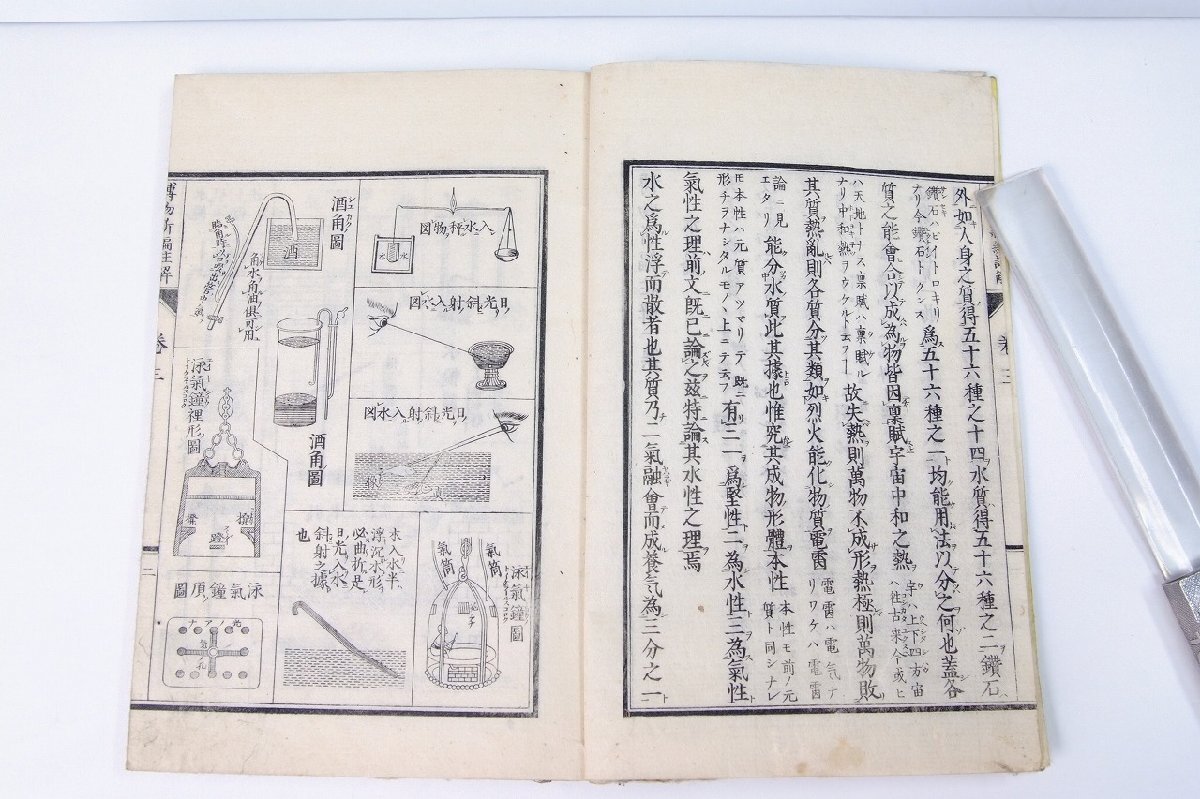 外如人身之質得五十六種之十四水質得五十六種之二鑽石
鑽石ハ
ナリ今鑽石トクンス
為五十六種之一均能用法以分之何也蓋各
質之能會合以成為物皆因稟賦宇宙中和之熱
宇ハ上下四方宙
ハ往古来今或ヒ
ハ天地トナス稟賦ハ稟賦ル
ナリ中和熱ヲウクルト云フ
故失熱則萬物不成形熱極則萬物敗
其質熱亂則各質分其類如烈火能化物質電雷
電雷ハ電気ナ
リワケハ電雷
論ニ見
エタリ
能分水質此其據也惟究其成物形體本性
本性モ前ノ元
質ト同シナレ
𪜈本性ハ元質アツマリテ既ニ
形チヲナシタルモノヽ上ニテ云フ
有三一為堅性二為水性三為氣性
氣性之理前文既已論之茲特論其水性之理焉
水之為性浮而散者也其質乃二氣融會而成養气為三分之一
卷三
入水秤物圖
水
日光斜射入水圖
日光斜射入水圖
酒角圖
酒
角水角油俱可用
酒角圖
泳氣鐘裡形圖
櫈
櫈
木入水半
浮沉水形
必曲折是
日光入水
斜射之據
也
泳氣鐘圖
氣筒
氣筒
泳氣鐘頂圖
光ノアナ
气孔
博物新編註解
卷三
二